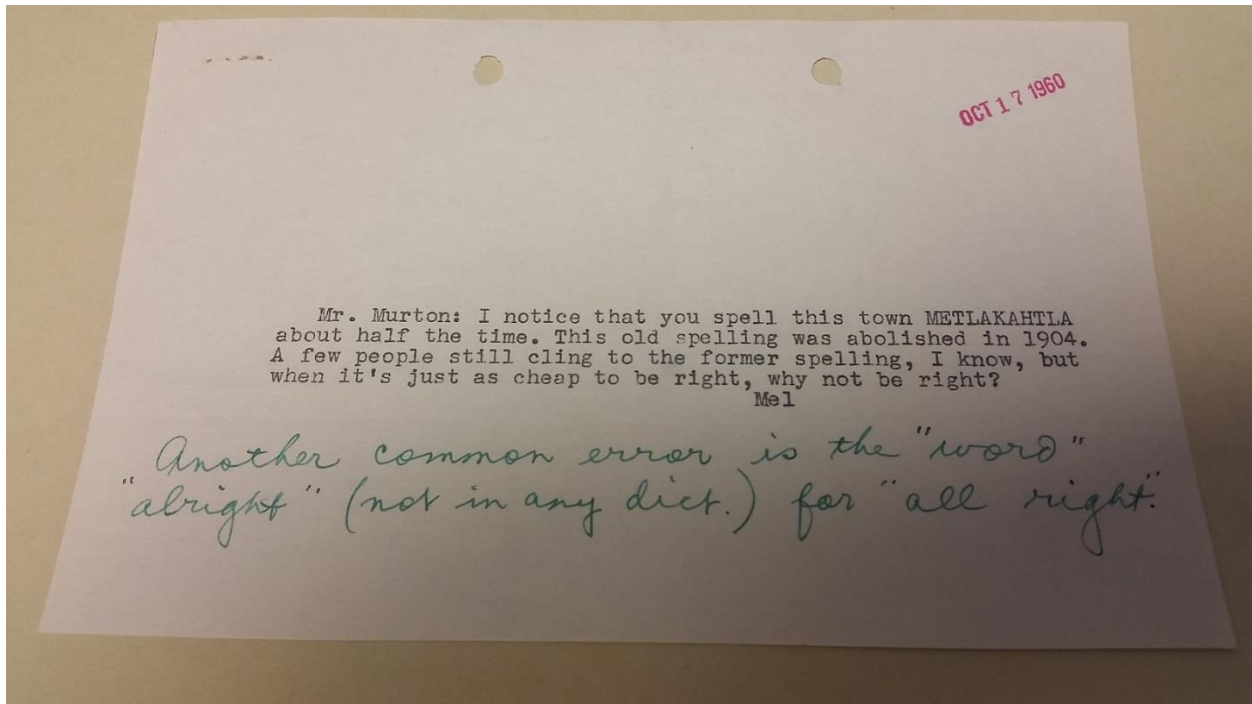 OCT 17 1960
Mr. Murton: I notice that you spell this town METLAKAHTLA
about half the time. This old spelling was abolished in 1904.
A few people still cling to the former spelling, I know, but
when it's just as cheap to be right, why not be right?
Mel
Another common error is the "word"
"alright" (not in any dict.) for "all right."